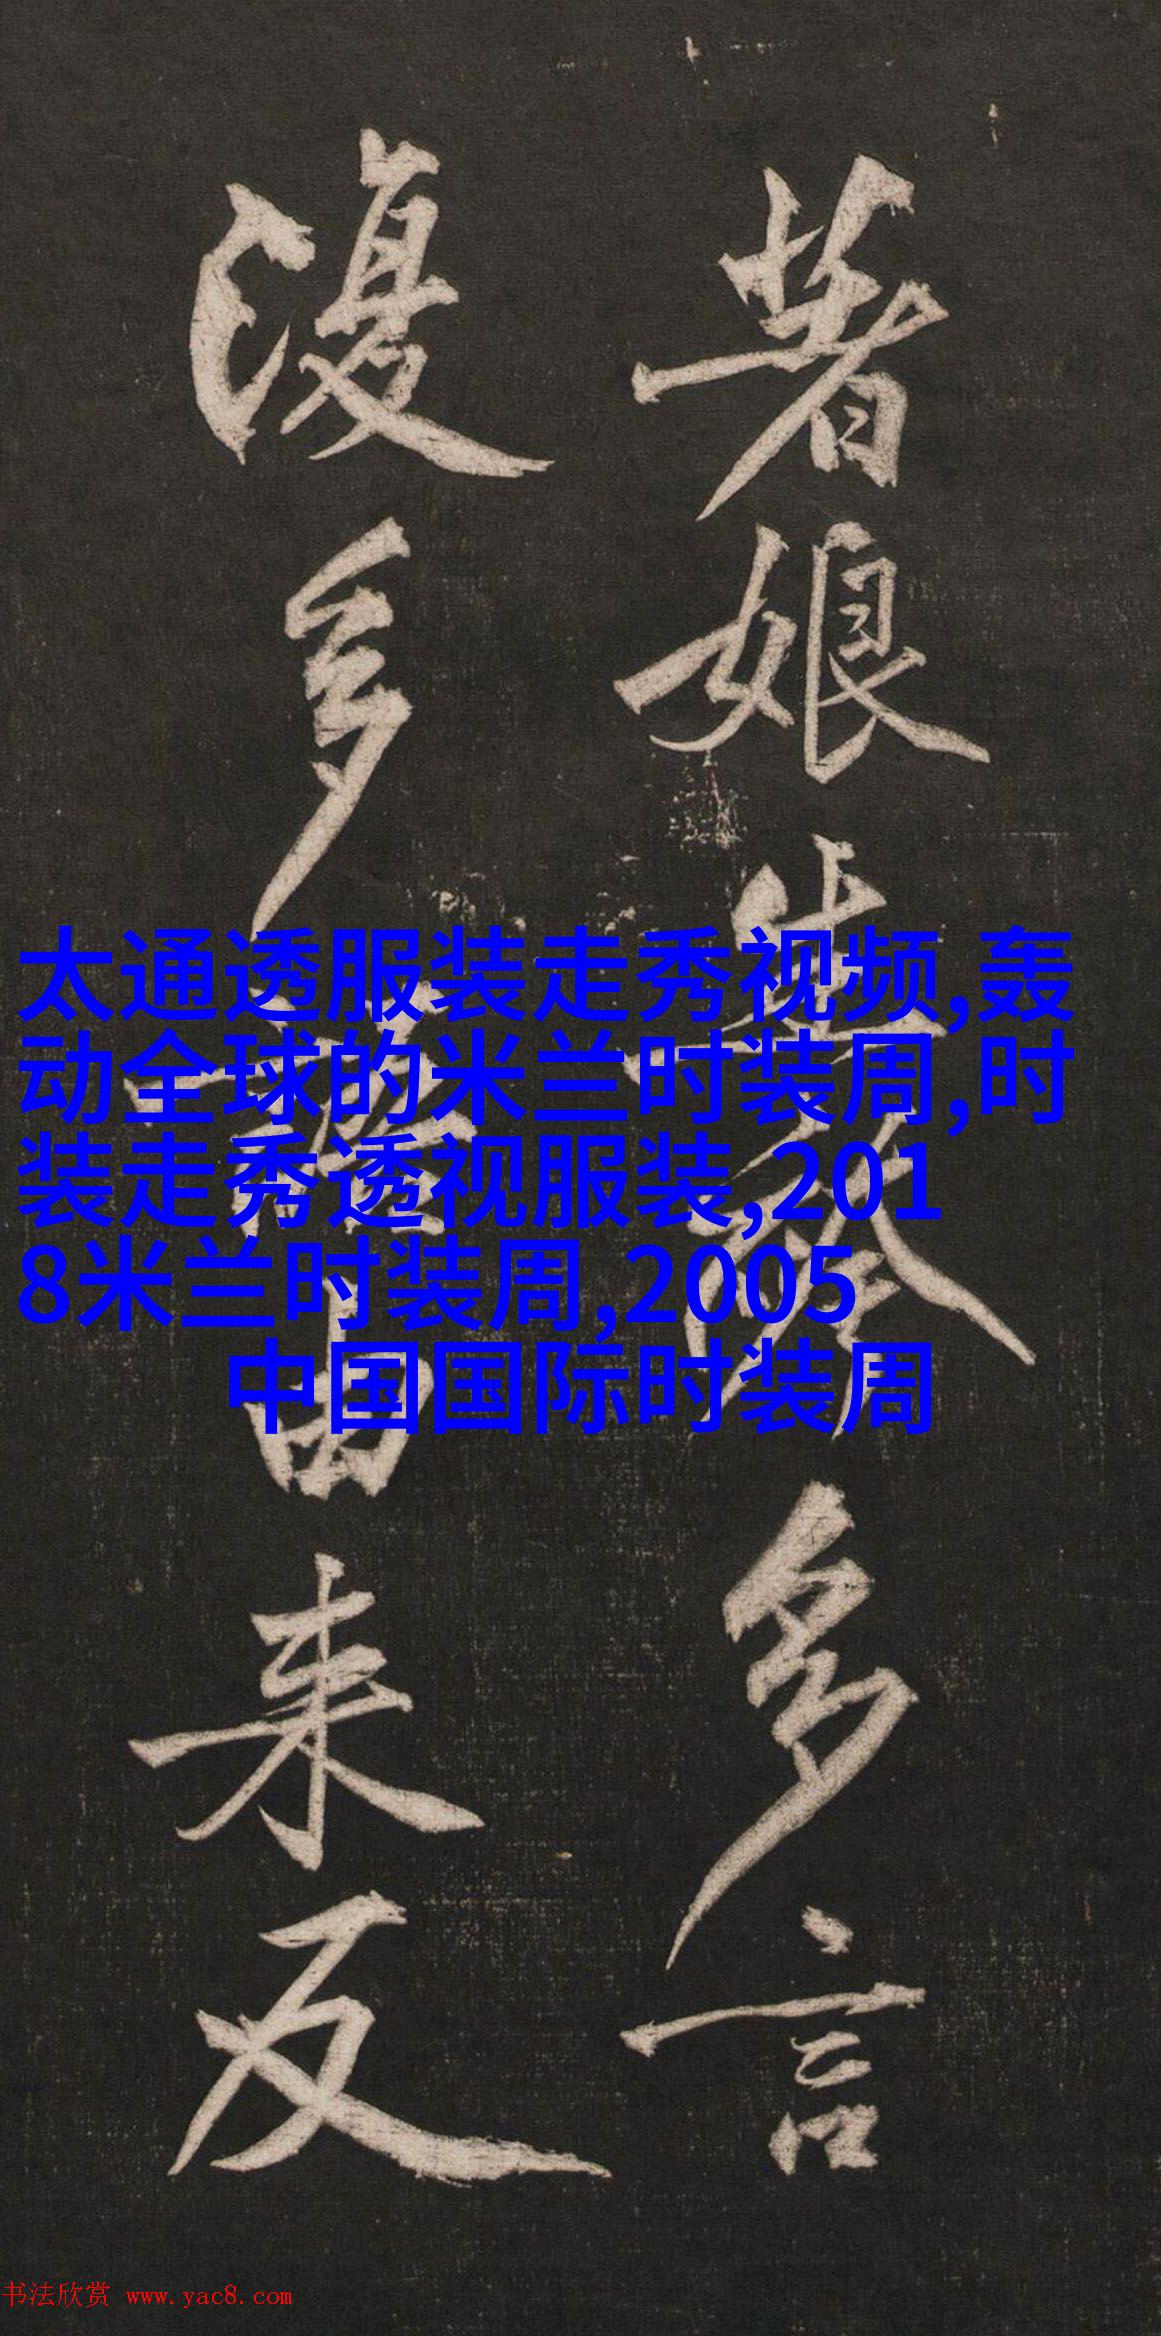 著娘
多言
復多
由来反
太通透服装走秀视频,轰
动全球的米兰时装周,时
装走秀透视服装,201
8米兰时装周,2005
中国国际时装周
书法欣赏 www.yac8.com